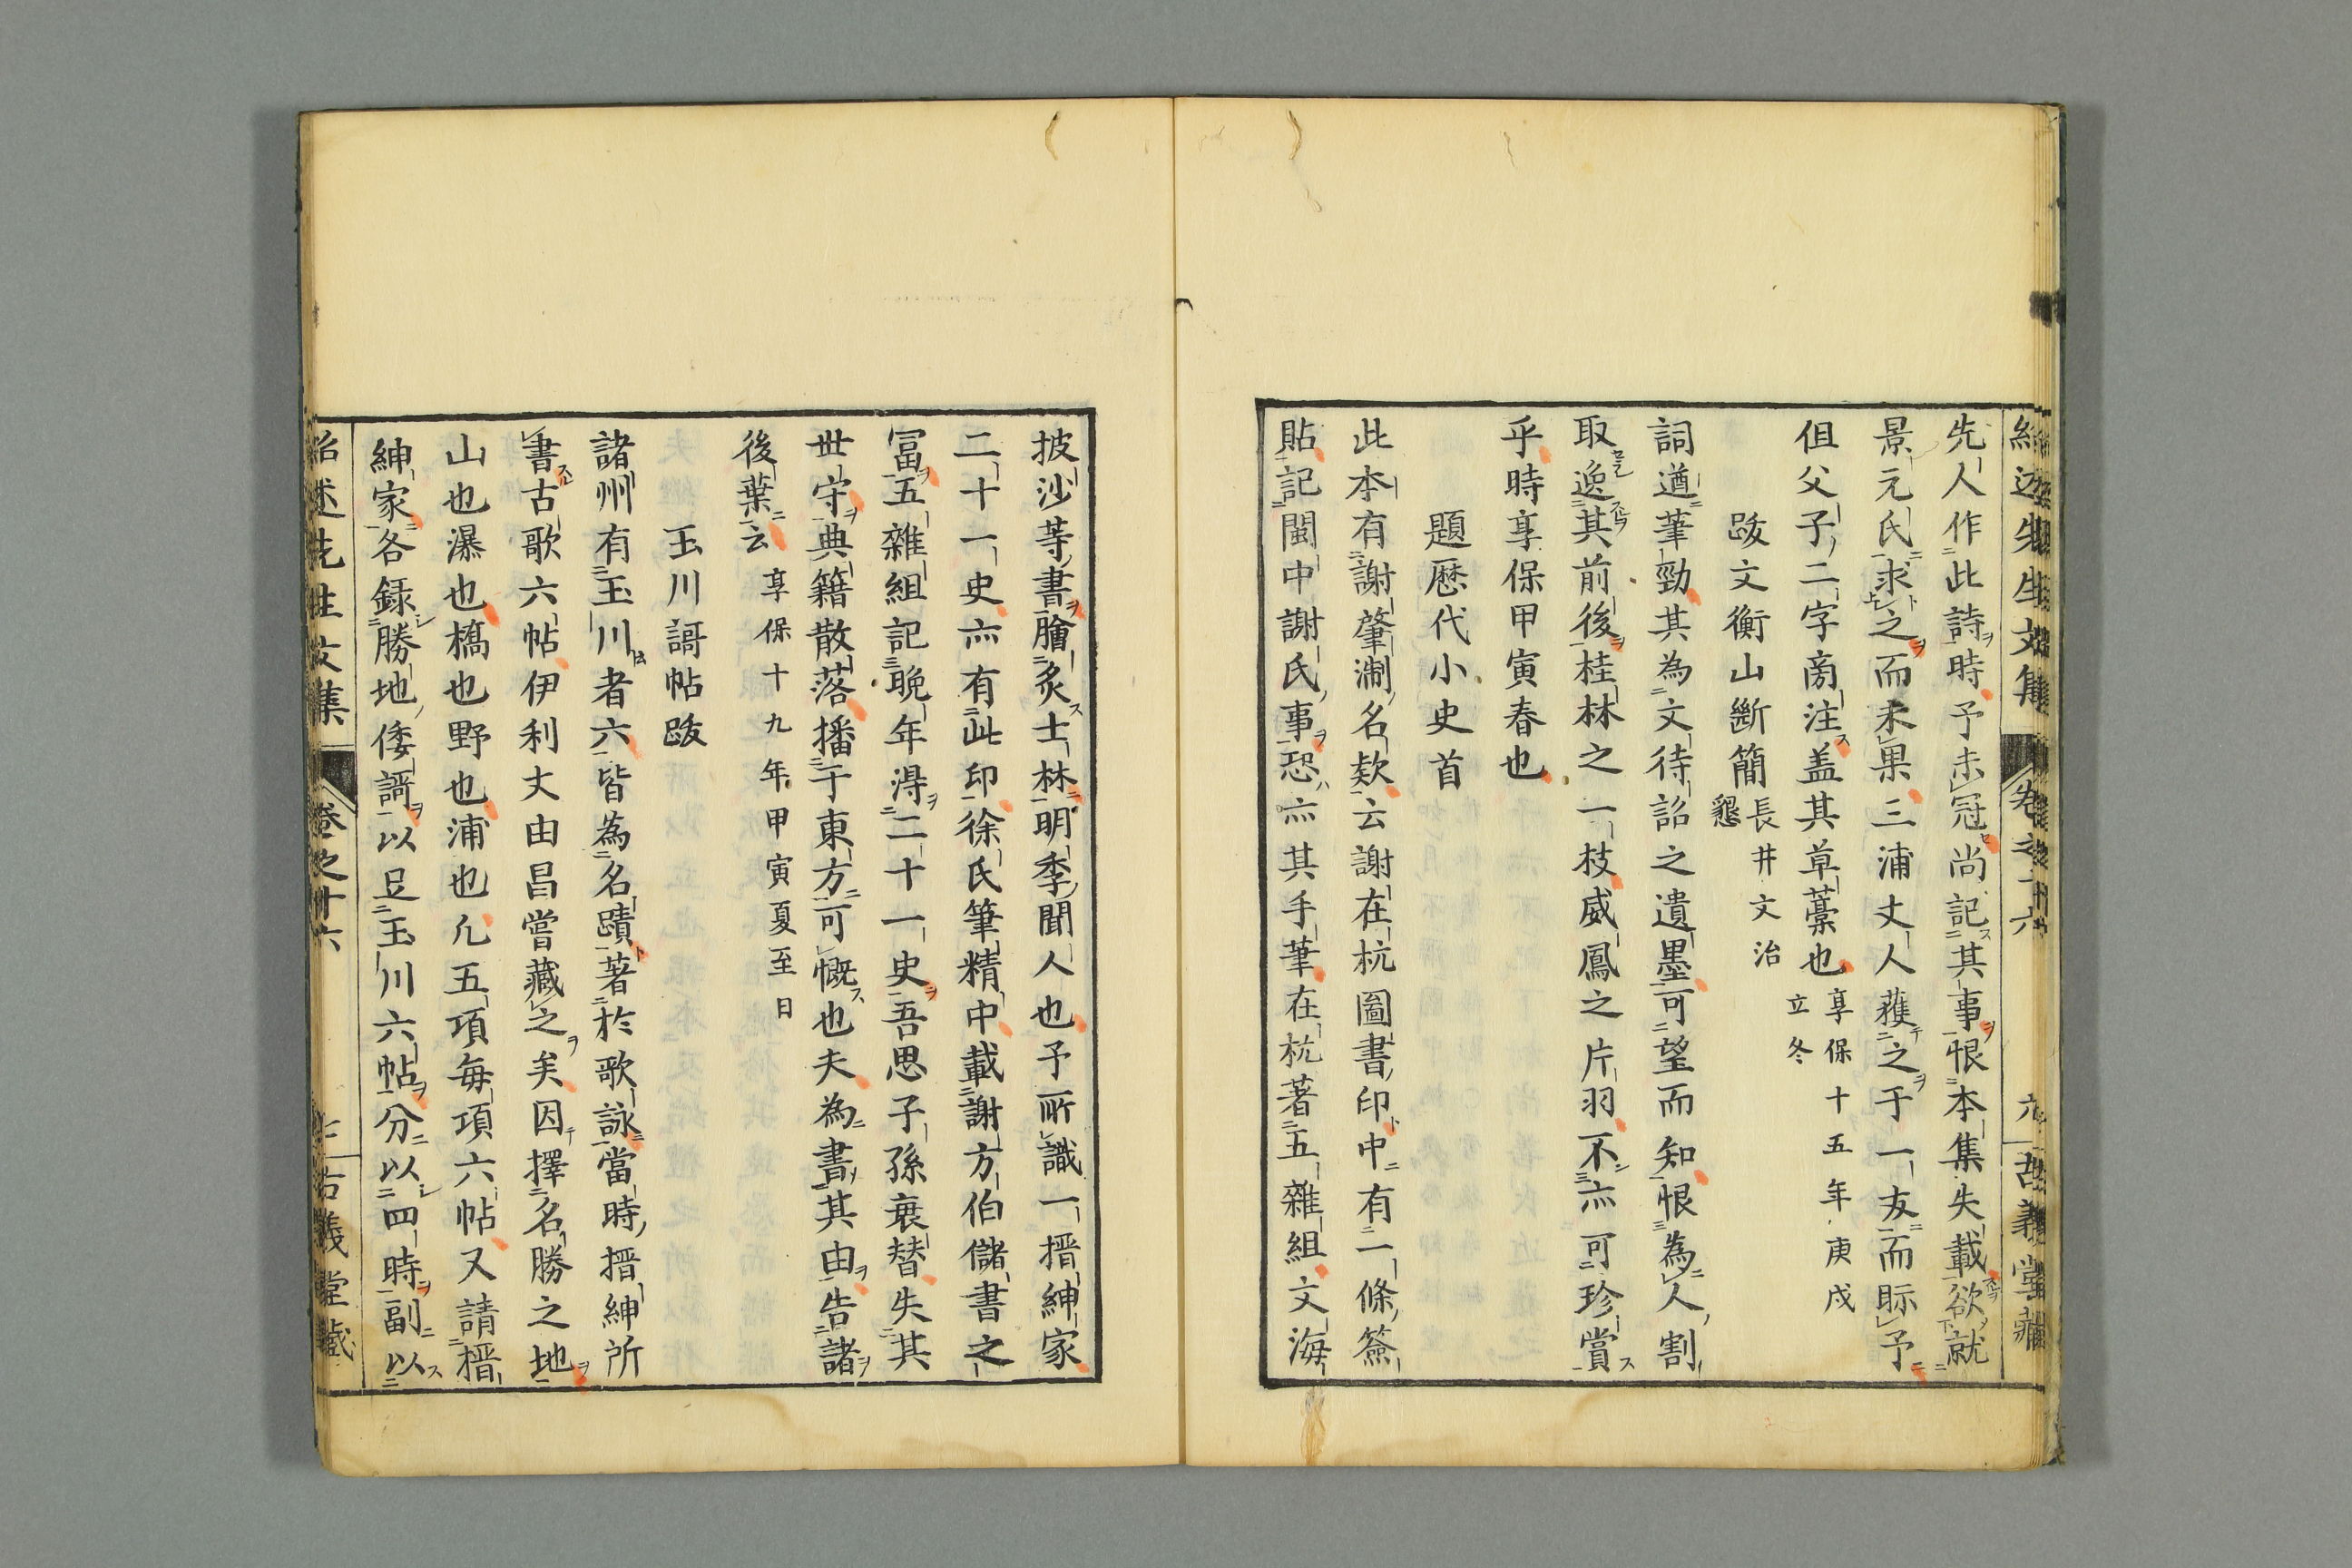 先人作此詩時予未冠尚記其事恨本集失載欲就
景元氏求之而未果三浦丈人蒦之于一友而眎予
但父子二字旁注盖其草藁也享保十五年庚戌
立冬
跋文衡山斷簡長井文治
懇
詞遒筆勁其為文待詔之遺墨可望而知恨為人割
取逸其前後桂林之一枝威鳳之片羽不亦可珍賞
乎時享保甲寅春也
題歷代小史首
此本有謝肇淛名欵云謝在杭圖書印中有二條簽
貼記閩中謝氏事恐亦其手筆在杭著五雜組文海
披沙等書膾炙士林明季聞人也予所識一搢紳家
二十一史亦有此印徐氏筆精中載謝方伯儲書之
富五雜組記晚年淂二十一史吾思子孫衰替失其
世守典籍散落播于東方可慨也夫為書其由告諸
後葉云享保十九年甲寅夏至日
玉川謌帖跋
諸州有玉川者六皆為名蹟著於歌詠當時搢紳所
書古歌六帖伊利丈由昌嘗藏之矣因擇名勝之地
山也瀑也橋也野也浦也凢五項每項六帖又請搢
紳家各録勝地倭謌以足玉川六帖分以四時副以
紹述先生文集 卷之十六 古義堂藏